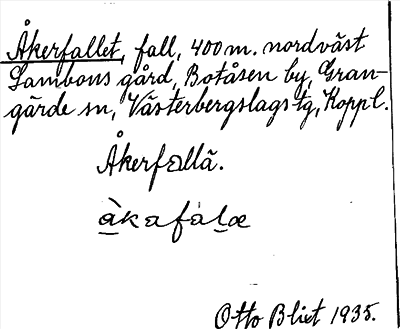 Åkerfallet, fall, 400 m. nordväst
Lambons gård, Botåsen by, Gran-
gärde sn, Västerbergslags tg, Kopp l.
Åkerfallä.
àkafàlæ
Otto Blixt 1935.